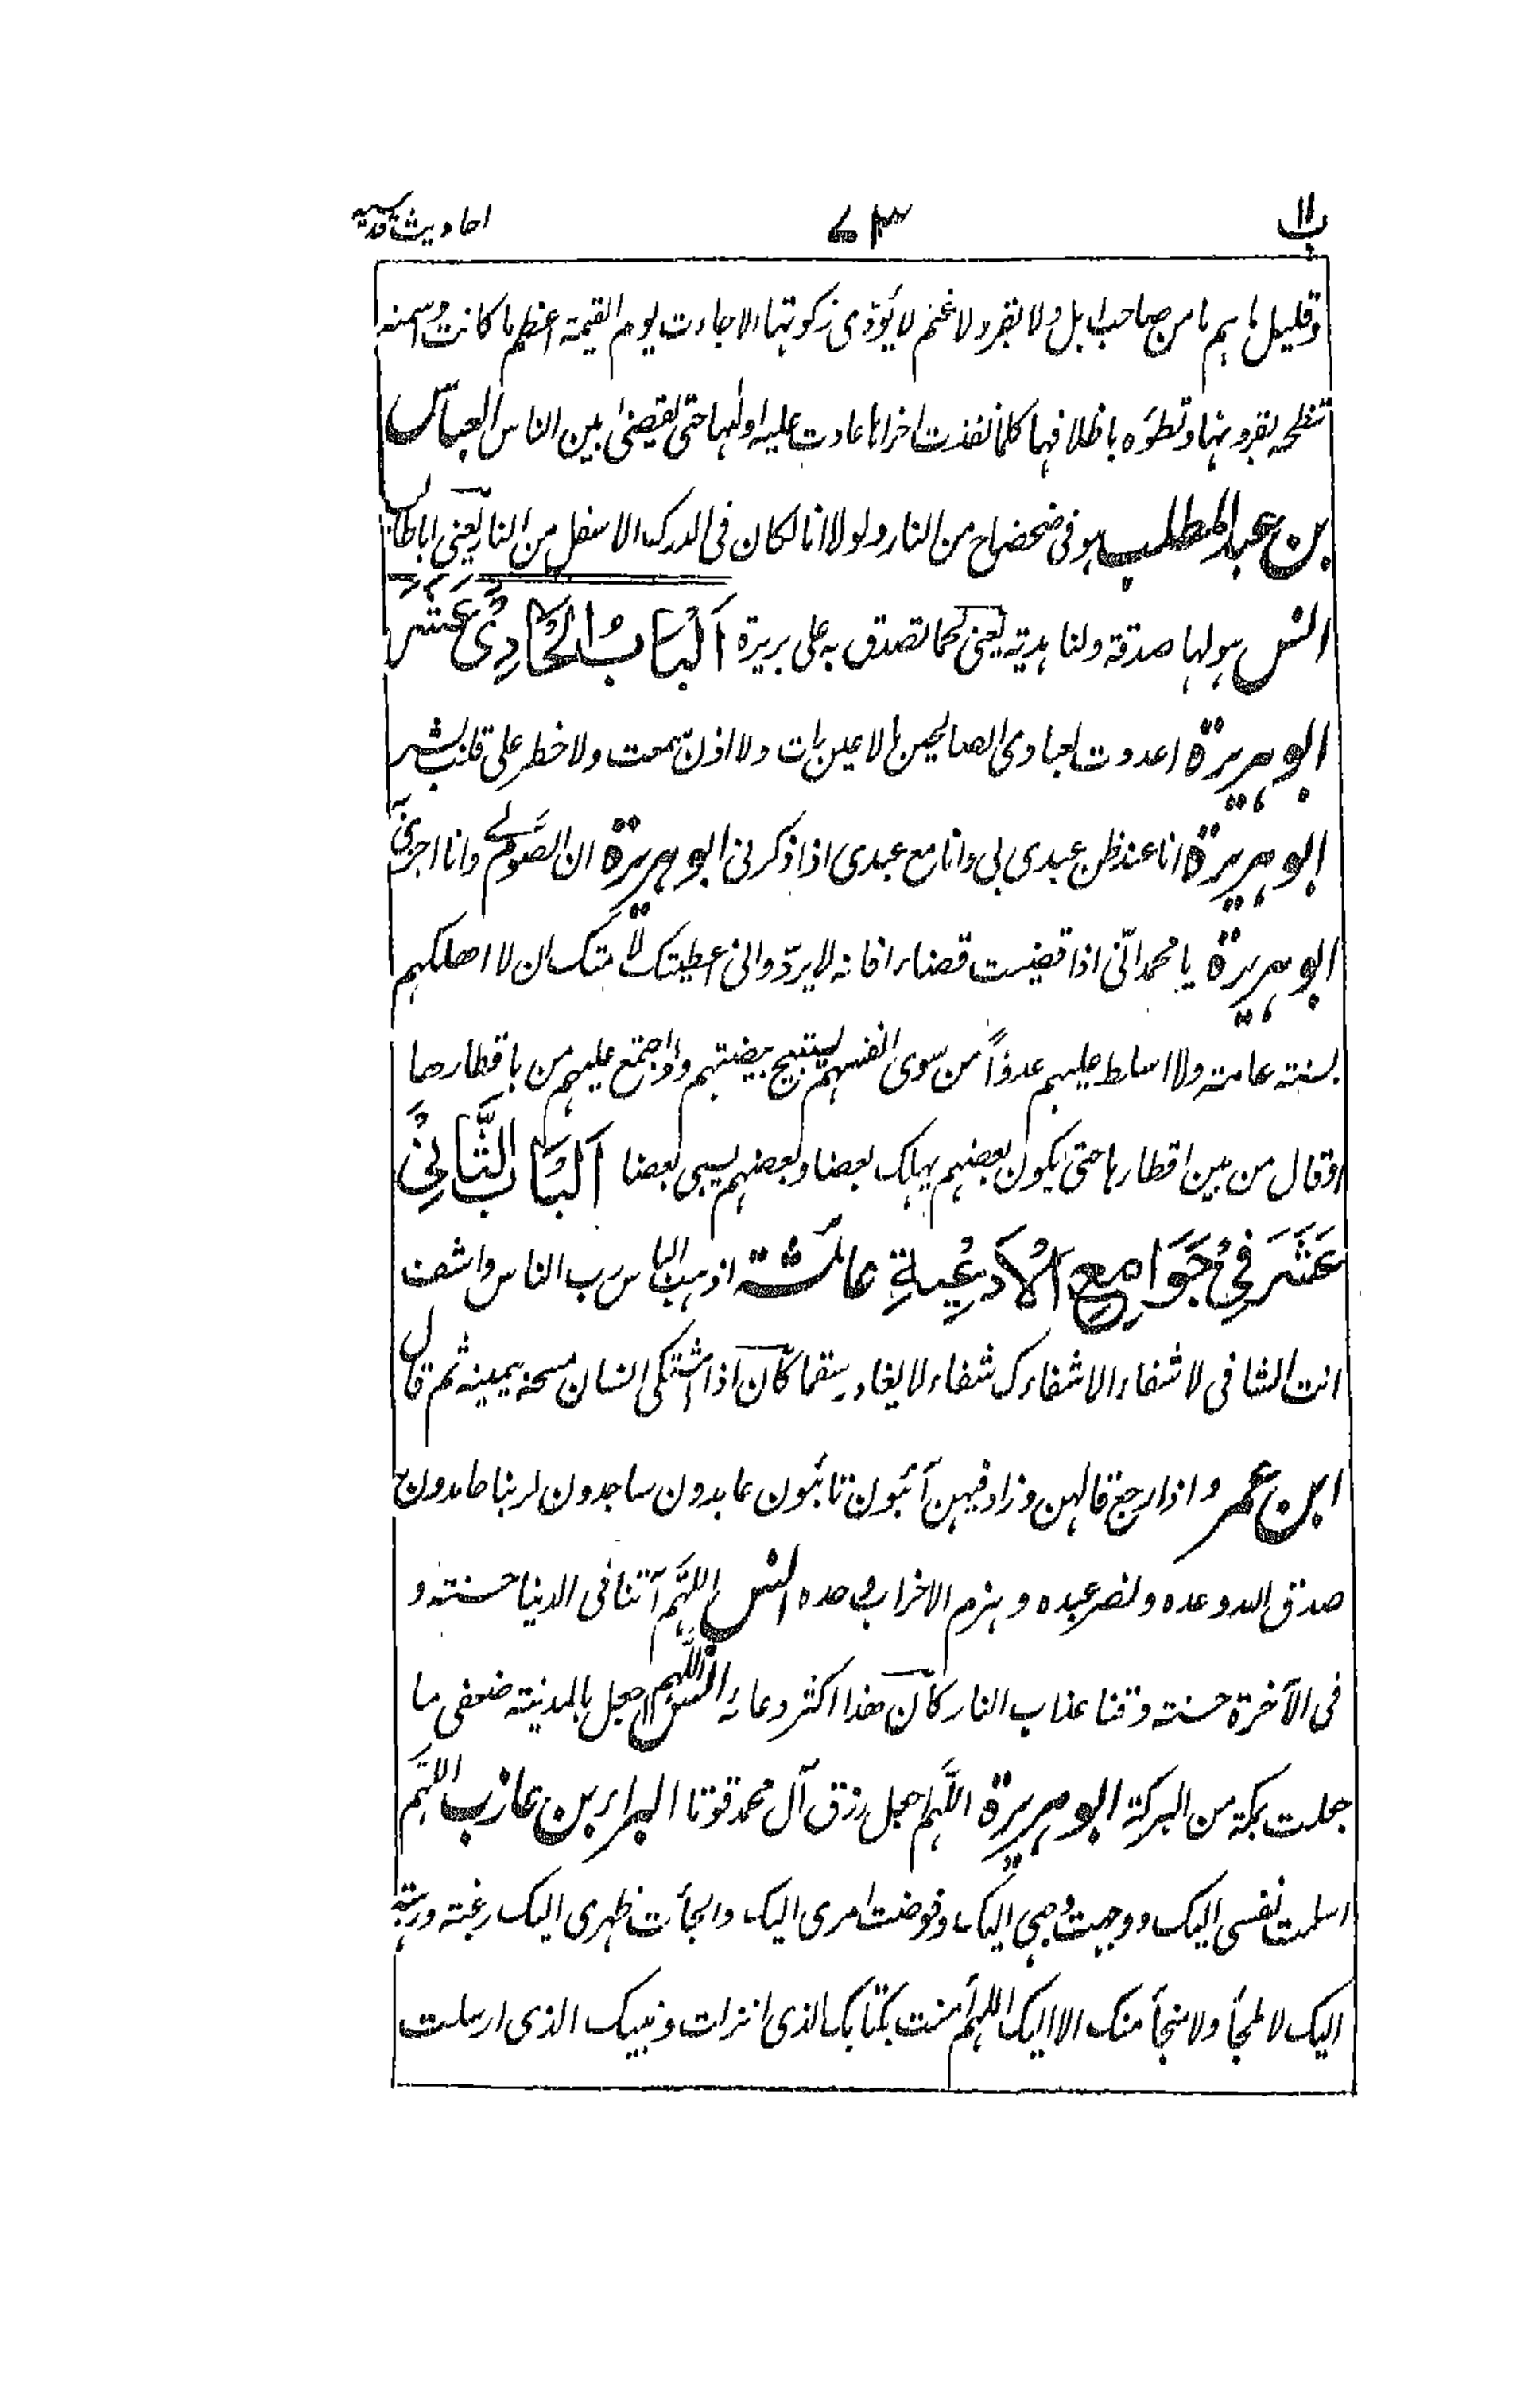 باب ۱۱ ۷۳ احادیث قدسیہ
وقلیل ما ہم ما من صاحب ابل ولا بقر ولا غنم لا یؤدّی زکوتہا الا جاءت یوم القیمۃ اعظم ما کانت واسمنہ
تنطحہ بقرونہا وتطؤہ باظلافہا کلما نفذت اخراہا عادت علیہ اولہا حتی یقضی بین الناس العباس
بن عبد المطلب ہو فی ضحضاح من النار ولولا انا لکان فی الدرک الاسفل من النار یعنی اباطالب
انس ہو لہا صدقۃ ولنا ہدیۃ یعنی لحما تصدق بہ علی بریرۃ اَلْبَابُ الْحَادِیْ عَشَرَ
ابو ہریرۃ اعددت لعبادی الصالحین ما لا عین رات ولا اذن سمعت ولا خطر علی قلب بشر
ابو ہریرۃ انا عند ظن عبدی بی وانا مع عبدی اذا ذکرنی ابو ہریرۃ ان الصَّوم لی وانا اجزی بہ
ابو ہریرۃ یا محمد انّی اذا قضیت قضاء فانہ لا یردّ وانی اعطیتک لامتک ان لا اھلکہم
بسنتہ عامتہ ولا اسلط علیہم عدوّاً من سوی انفسہم یستبیح بیضتہم ولو اجتمع علیہم من باقطارھا
اوقال من بین اقطارہا حتی یکون بعضہم یہلک بعضا وبعضہم یسبی بعضا اَلْبَابُ الثَّانِیْ
عَشَرَ فِیْ جَوَامِعِ الْاَدْعِیَۃِ عائشۃ اذہب الباس رب الناس واشف
انت الشافی لا شفاء الا شفاءک شفاء لا یغادر سقما کان اذا اشتکی انسان مسحہ بیمینہ ثم قال
ابن عمر واذا رجع قالہن وزاد فیہن آئبون تائبون عابدون ساجدون لربنا حامدون
صدق اللہ وعدہ ونصر عبدہ وہزم الاحزاب وحدہ انس اللہَّم آتنا فی الدنیا حسنتہ و
فی الآخرۃ حسنتہ وقنا عذاب النار کان ھذا اکثر دعائہ انس اللّٰہم اجعل بالمدینتہ ضعفی ما
جعلت بمکۃ من البرکۃ ابو ہریرۃ اللّہم اجعل رزق آل محمد قوتا البراء بن عازب اللہَّم
اسلمت نفسی الیک ووجہت وجہی الیک وفوضت امری الیک والجأت ظہری الیک رغبتہ ورہبتہ
الیک لا ملجأ ولا منجأ منک الا الیک اللہم آمنت بکتابک الذی انزلت ونبیک الذی ارسلت